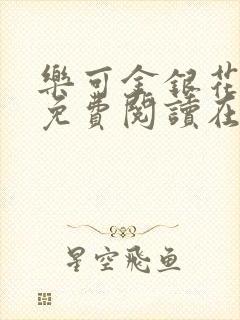 樂可金銀花
免費閱讀在
星空飛鱼